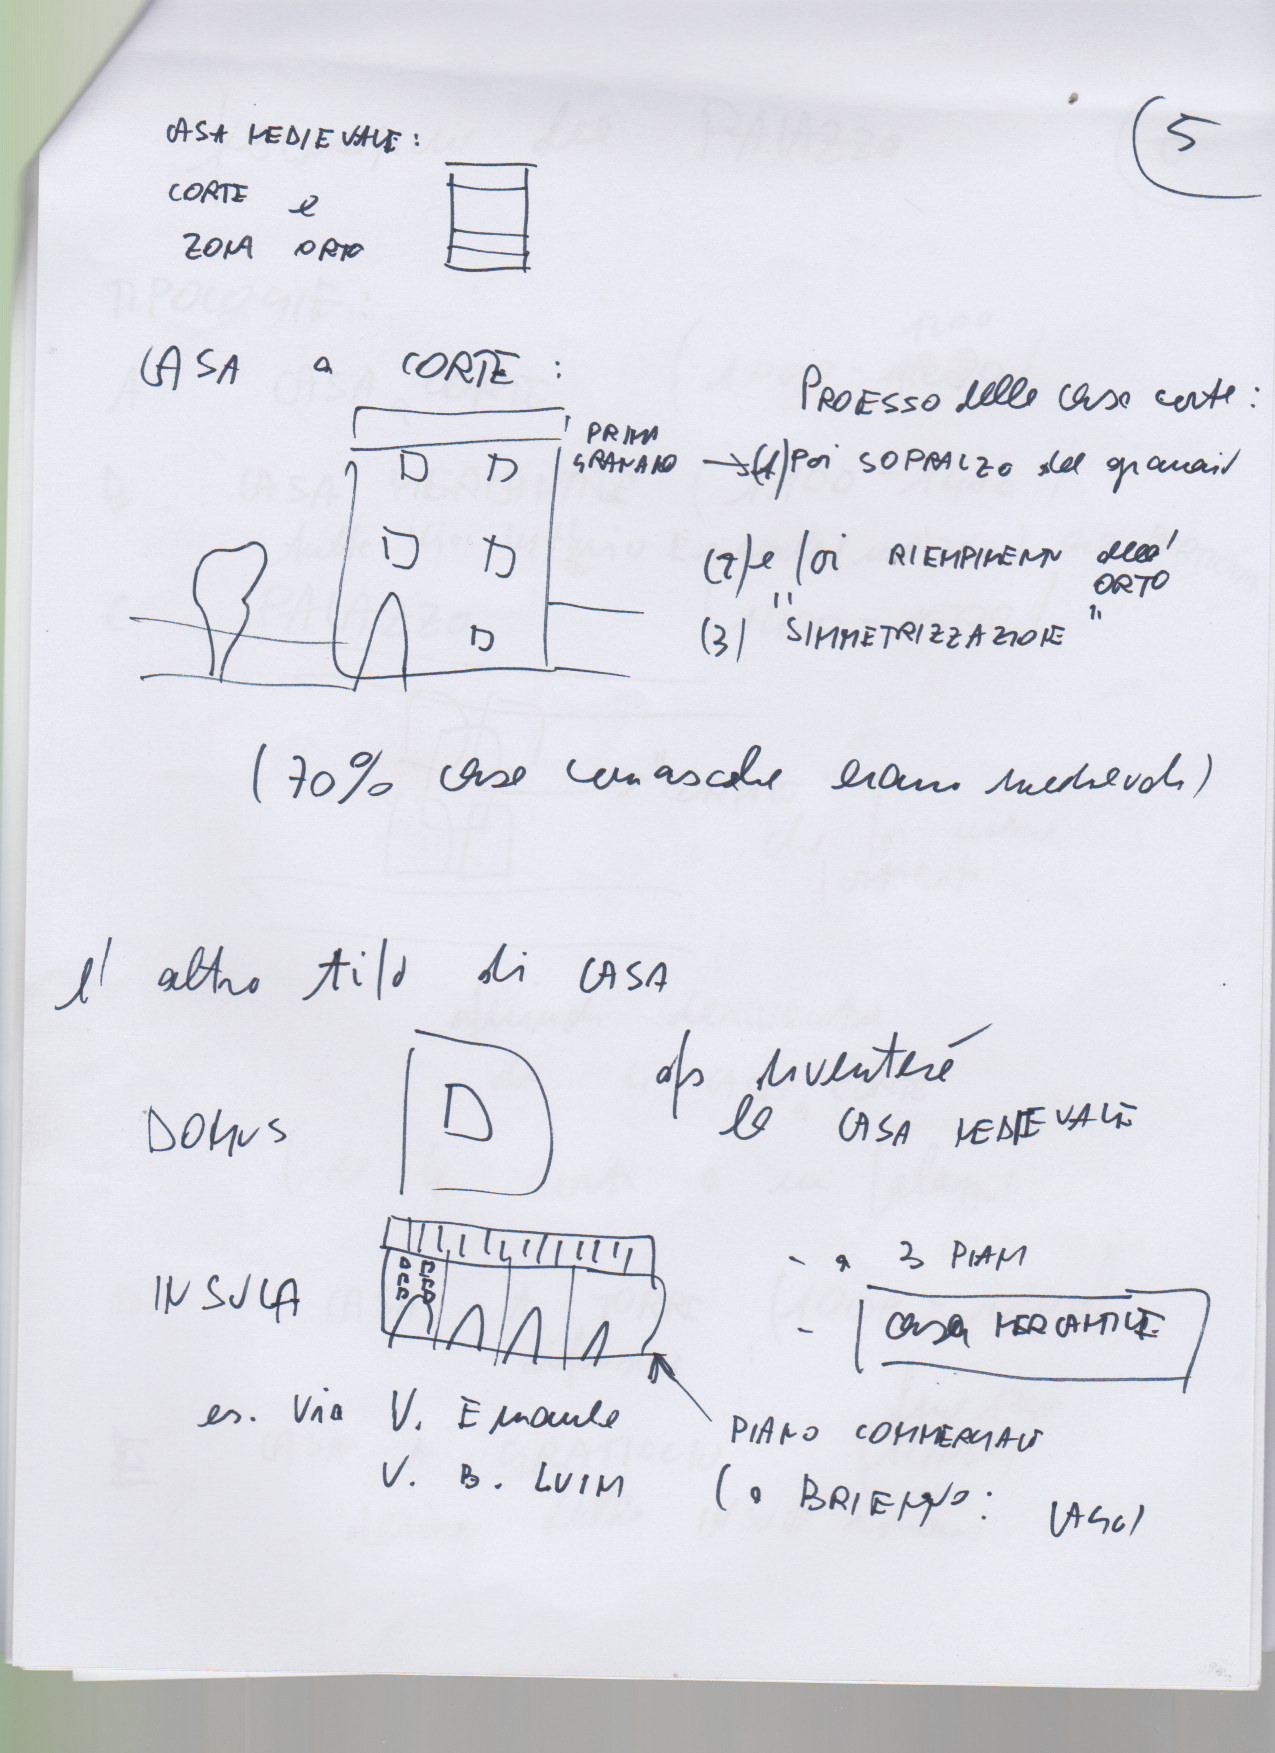 5
CASA MEDIEVALE:
CORTE e
ZONA ORTO
CASA a CORTE:
PRIMA
GRANAIO
PROCESSO delle case corte:
(1) poi SOPRALZO del granaio
(2) e poi RIEMPIMENTI dell'
ORTO
(3) "SIMMETRIZZAZIONE"
(70% case comasche erano medievali)
l'altro tipo di CASA
DOMUS
D
diventerà
la CASA MEDIEVALE
INSULA
- a 3 PIANI
- casa MERCANTILE
es. Via V. Emanuele
V. B. LUINI
PIANO COMMERCIALE
(a BRIENNO: LAGO)